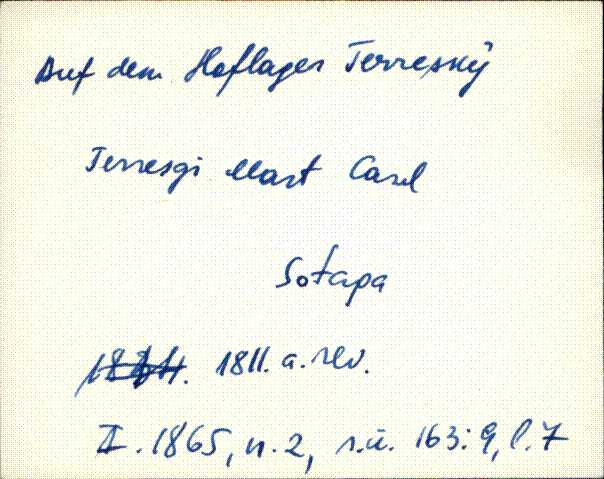 Auf dem Hoflager Terreský
Terresgi Mart Carl
Sotapa
1811. a. rev.
I. 1865, n. 2, s.ü. 163:9, l. 7